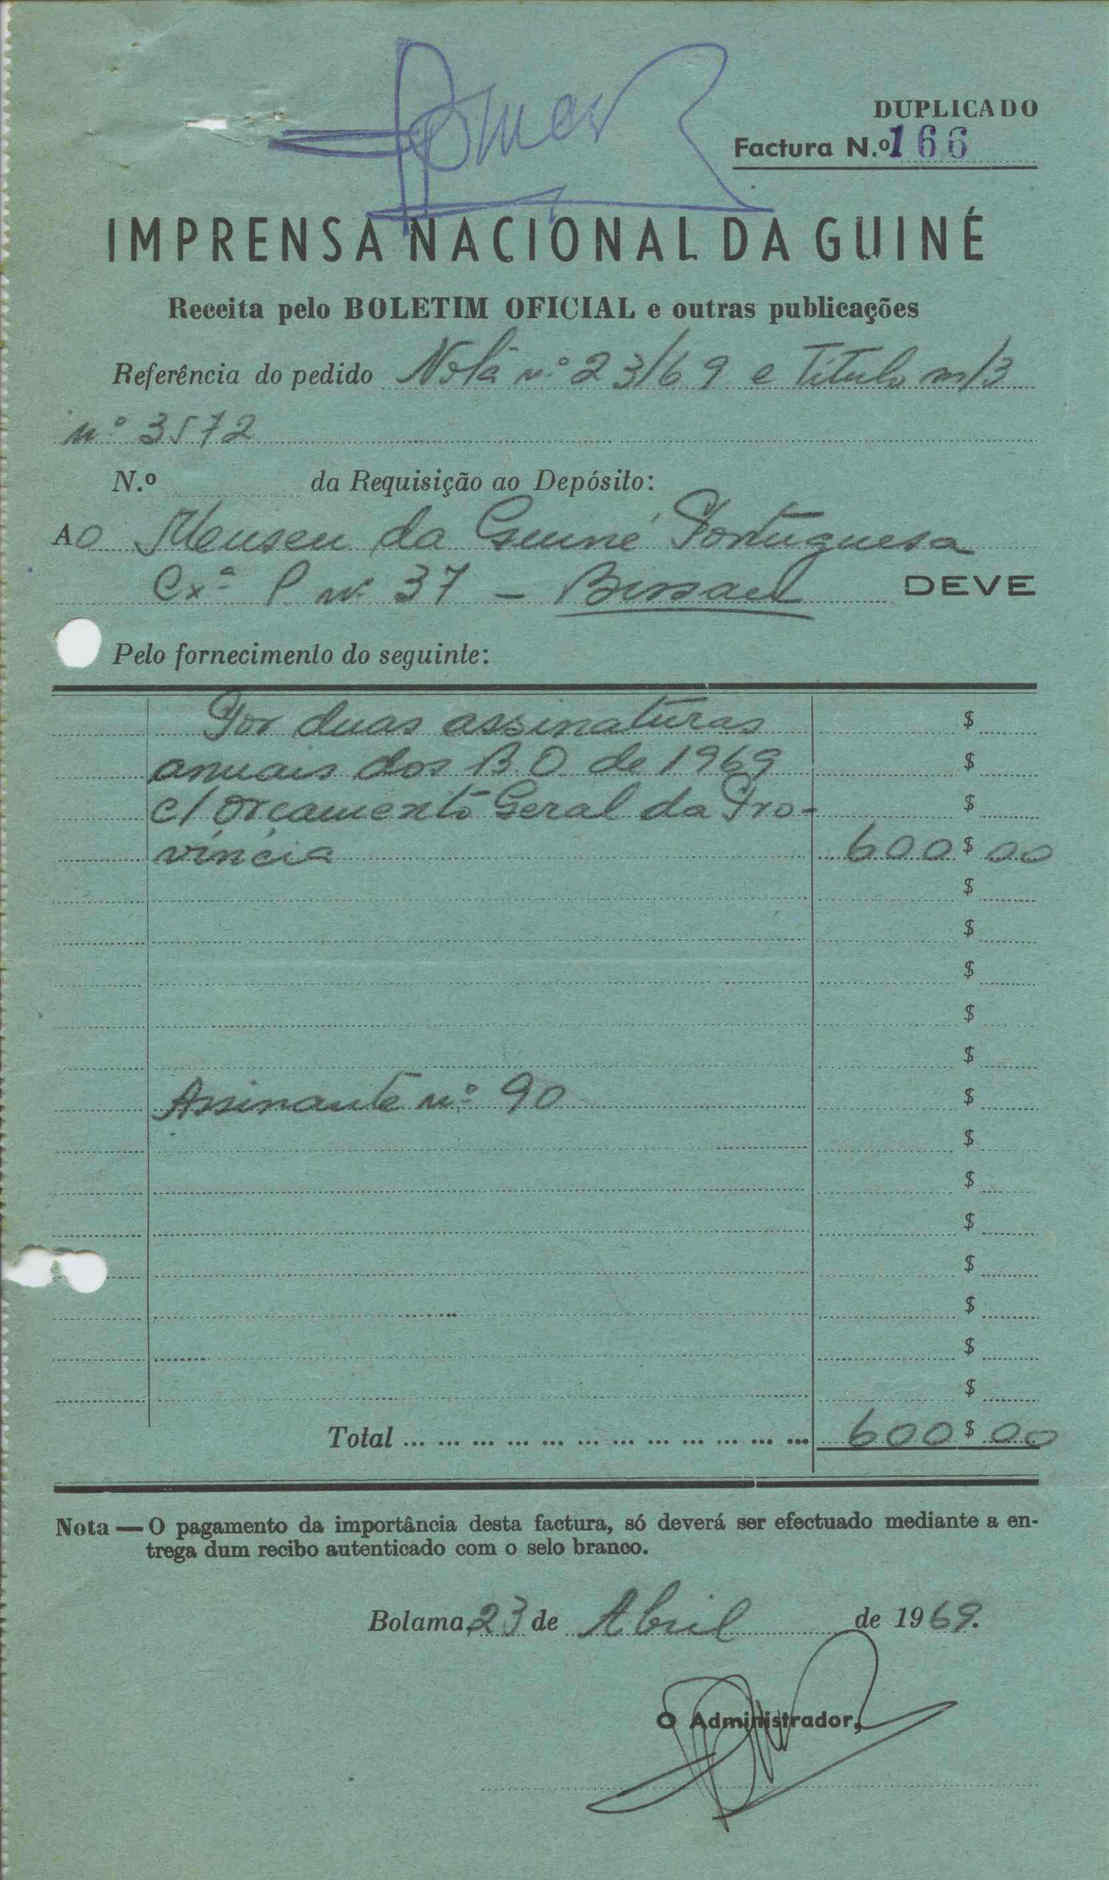 DUPLICADO
Factura N.º 166
IMPRENSA NACIONAL DA GUINÉ
Receita pelo BOLETIM OFICIAL e outras publicações
Referência do pedido Nota nº 23/69 e Titulo m/3
nº 3572
N.º da Requisição ao Depósito:
AO Museu da Guiné Portuguesa
Cxª P. nº 37 – Bissau DEVE
Pelo fornecimento do seguinte:
Por duas assinaturas $
anuais dos B.O. de 1969 $
c/ Orçamento Geral da Pro- $
víncia 600$00
$
$
$
$
$
Assinante nº 90 $
$
$
$
$
$
$
$
Total ... ... ... ... ... ... ... ... ... ... ... ... 600$00
Nota — O pagamento da importância desta factura, só deverá ser efectuado mediante a en-
trega dum recibo autenticado com o selo branco.
Bolama, 23 de Abril de 1969.
O Administrador,